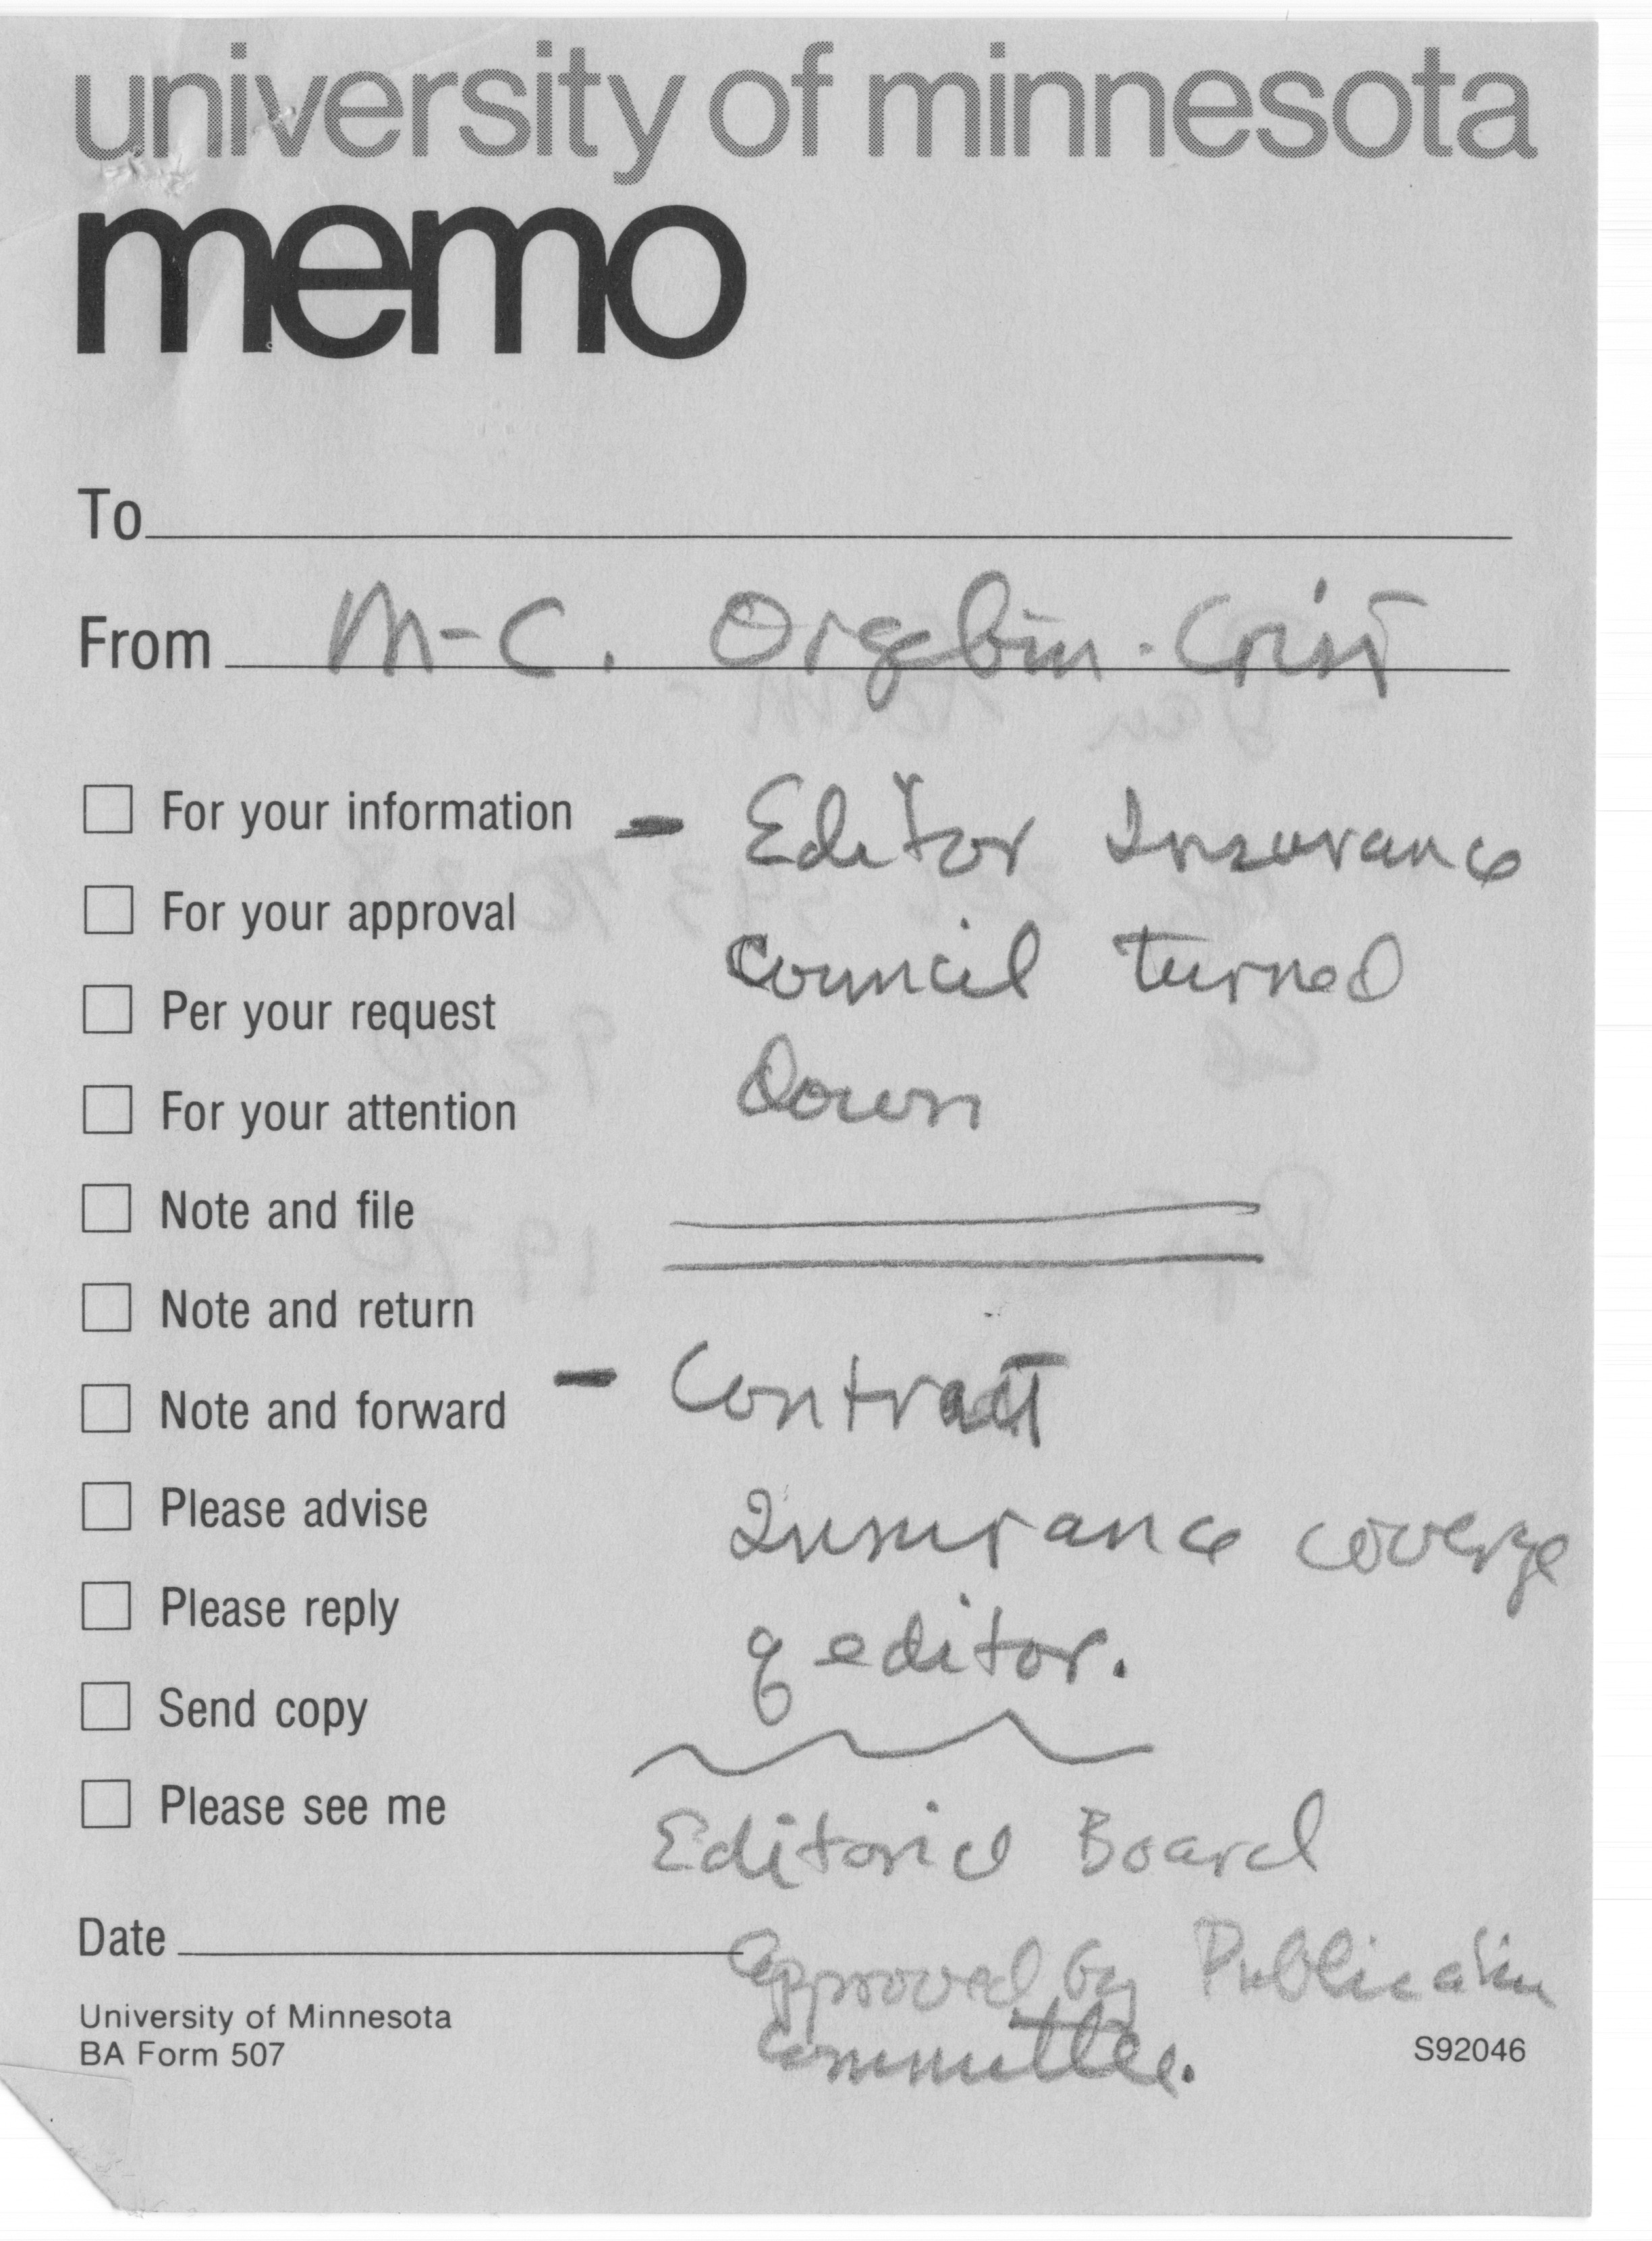 university of minnesota
memo
To
From M-C. Orgebin-Crist
For your information - Editor Insurance
For your approval Council turned
Per your request
For your attention Down
Note and file
Note and return
Note and forward - Contract
Please advise Insurance coverge
Please reply of editor.
Send copy
Please see me Editorial Board
Date approved by Publication
University of Minnesota Committee.
BA Form 507 S92046